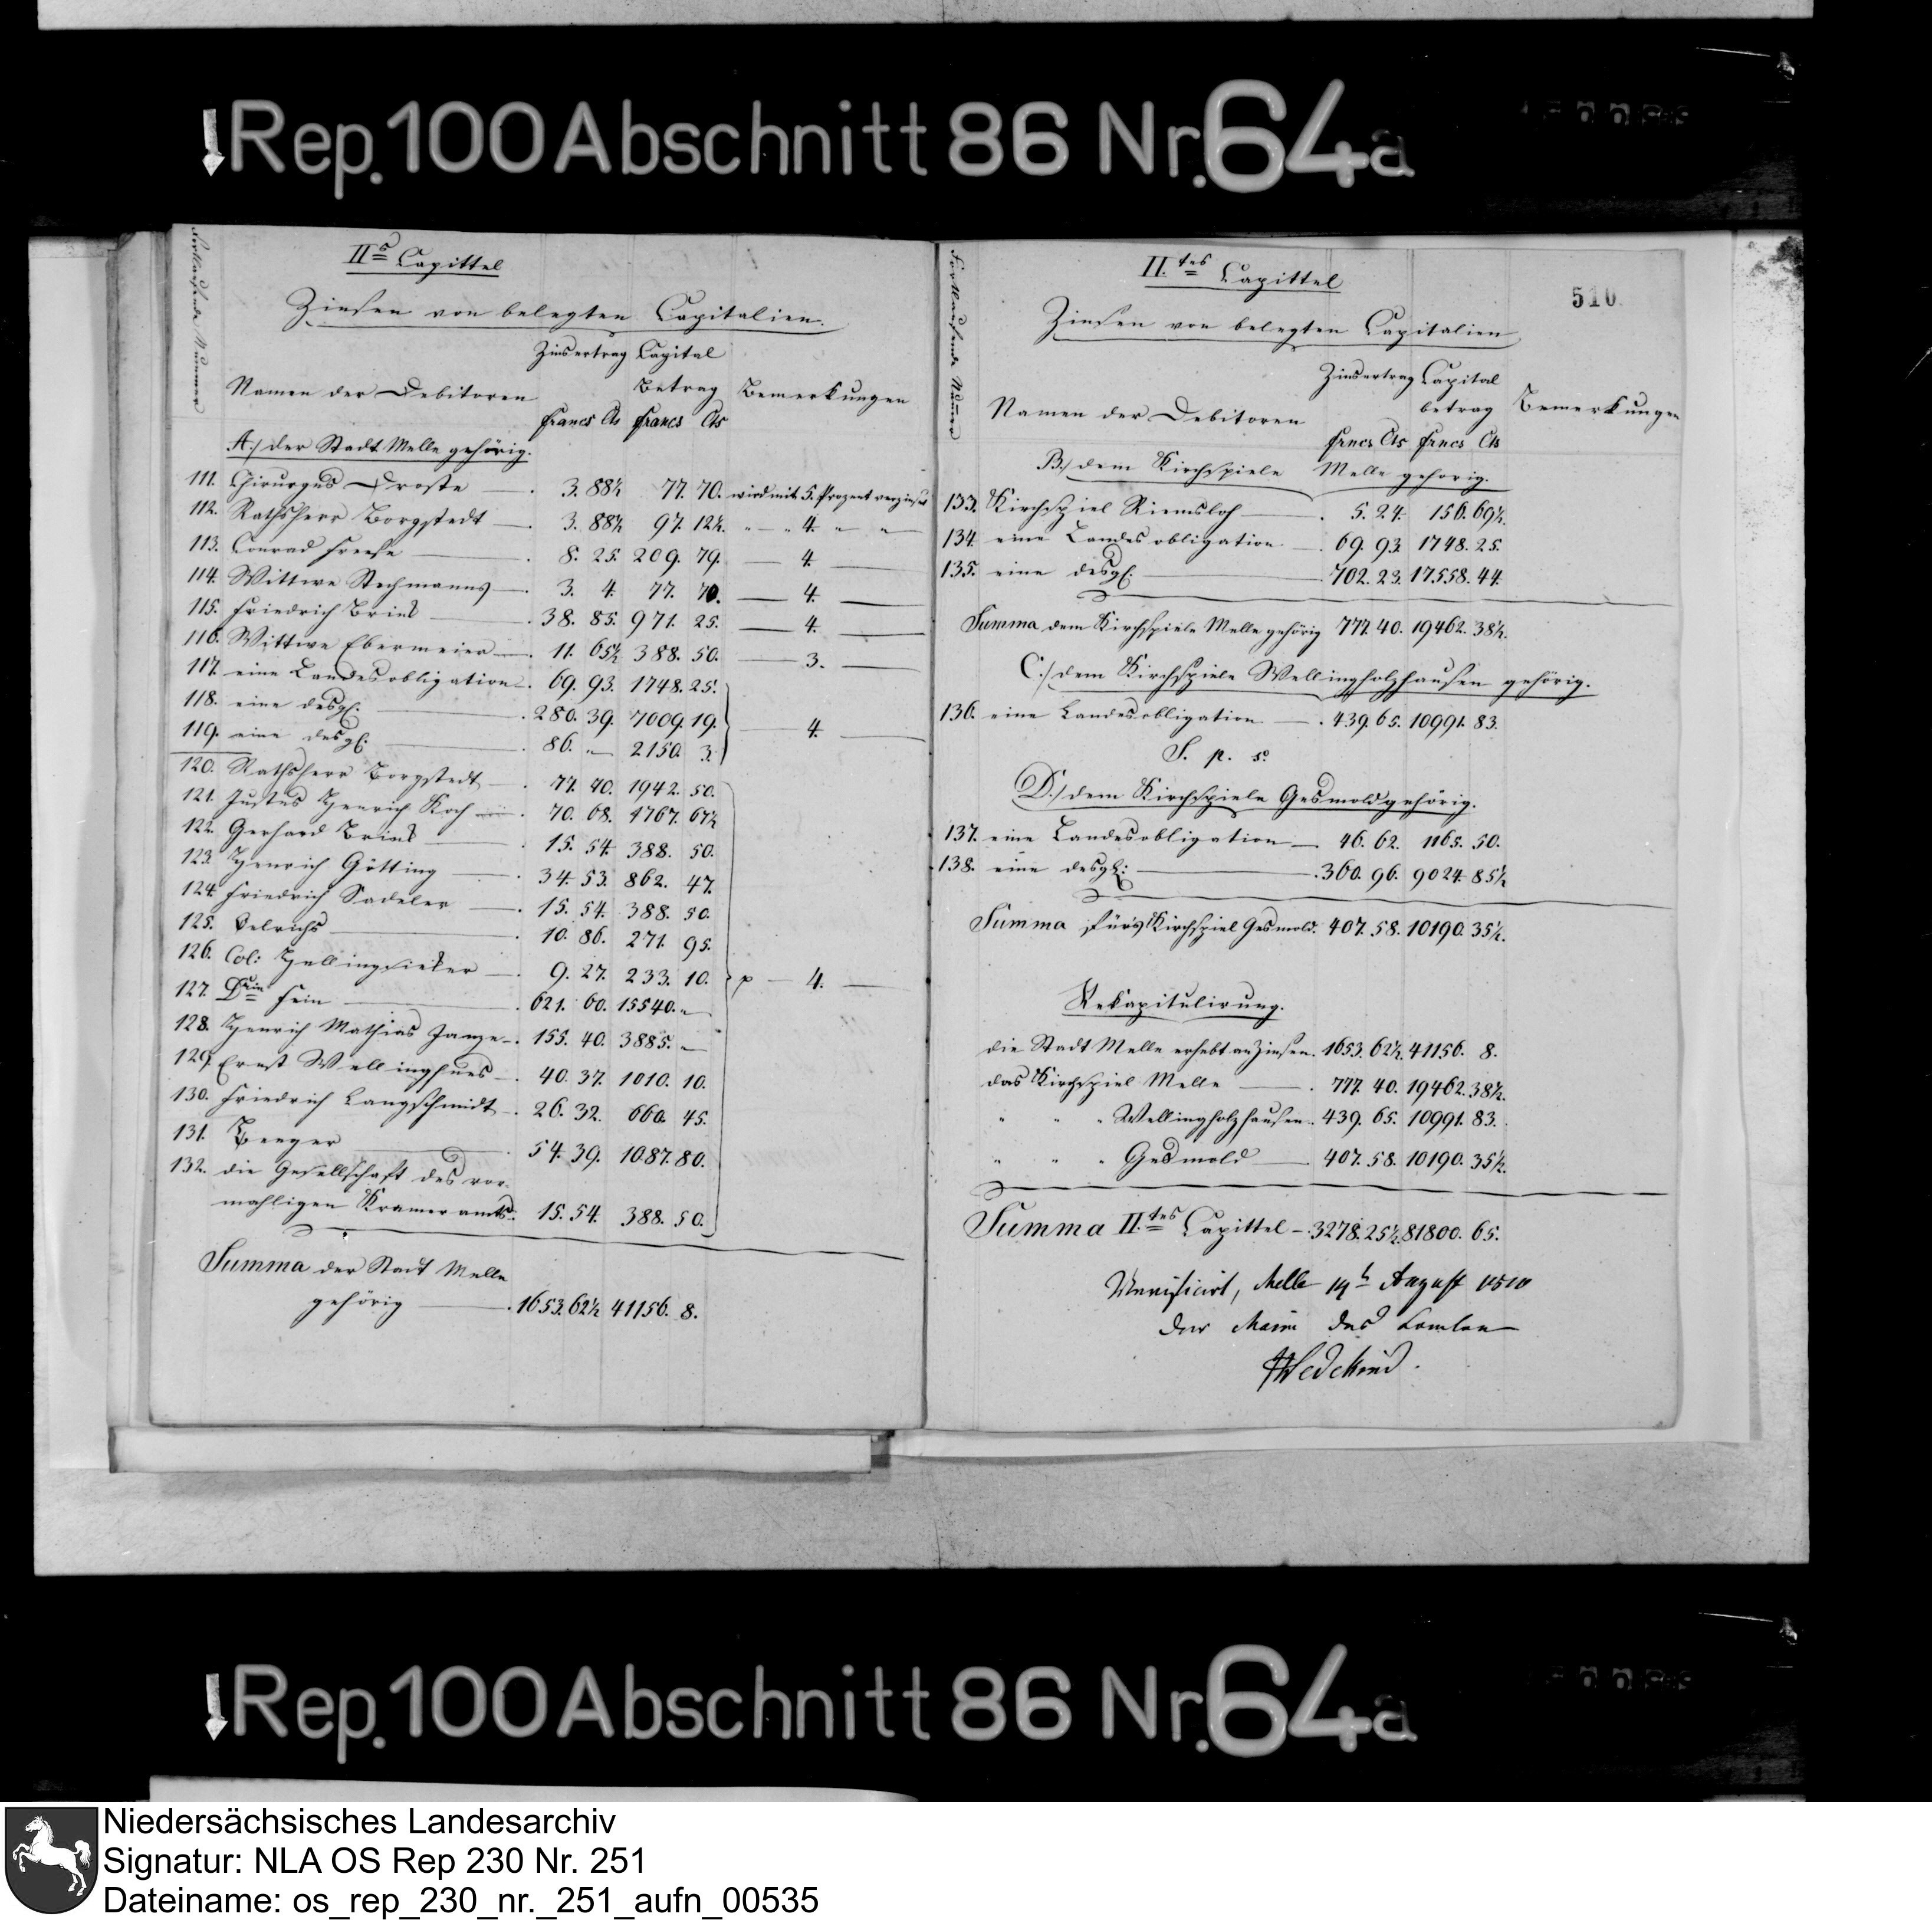 Rep. 100 Abschnitt 86 Nr. 64a
IIs Capittel
Zinsen von belegten Capitalien.
Fortlaufende Nummer
Namen der Debitoren
Zinsertrag Capital Betrag Bemerkungen
francs Cts francs Cts
A./ der Stadt Melle gehörig.
111. Chirurgus Droste 3. 88½ 77. 70. wird mit 5. Prozent verzinset
112. Rathsherr Borgstedt 3. 88½ 97. 12½. " " 4. " "
113. Conrad Freese 8. 25. 209. 79. 4.
114. Wittwe Stechmanns 3. 4. 77. 70. 4.
115. Friedrich Brind 38. 85. 971. 25. 4.
116. Wittwe Ebermeier 11. 65½ 388. 50. 3.
117. eine Landesobligation 69. 93. 1748. 25.
118. eine desgl. 280. 39. 7009. 19. 4.
119. eine desgl. 86. " 2150. 3.
120. Rathsherr Borgstedt 77. 70. 1942. 50.
121. Justus Henrich Koch 70. 68. 1767. 67½
122. Gerhard Brind 15. 54. 388. 50.
123. Henrich Götting 34. 53. 862. 47.
124. Friedrich Sadeler 15. 54. 388. 50.
125. Oelrichs 10. 86. 271. 95.
126. Col: Hellingsieker 9. 27. 233. 10. p 4.
127. Fein 621. 60. 15540. "
128. Henrich Mathias Janze 155. 40. 3885. "
129. Ernst Wellinghues 40. 37. 1010. 10.
130. Friedrich Langschmidt 26. 32. 660. 45.
131. Berger 54. 39. 1087. 80.
132. die Gesellschaft des vor-
mahligen Krameramts: 15. 54. 388. 50.
Summa der Stadt Melle
gehörig 1653. 62½ 41156. 8.
II.tes Capittel
510
Zinsen von belegten Capitalien
Fortlaufende Numer
Namen der Debitoren
Zinsertrag Capital betrag Bemerkungen
frncs Cts frncs Cts
B./ dem Kirchspiele Melle gehörig.
133. Kirchspiel Riemsloh 5. 24. 156. 69½.
134. eine Landesobligation 69. 93. 1748. 25.
135. eine desgl. 702. 23. 17558. 44.
Summa dem Kirchspiele Melle gehörig 777. 40. 19462. 38½.
C./ dem Kirchspiele Wellingholzhausen gehörig.
136. eine Landesobligation 439. 65. 10991. 83.
S. p. s.
D./ dem Kirchspiele Gesmold gehörig.
137. eine Landesobligation 46. 62. 1165. 50.
138. eine desgl: 360. 96. 9024. 85½
Summa fürs Kirchspiel Gesmold. 407. 58. 10190. 35½.
Rekapitulirung.
die Stadt Melle erhebt an Zinsen. 1653. 62½. 41156. 8.
das Kirchspiel Melle 777. 40. 19462. 38½.
" " " Wellingholzhausen. 439. 65. 10991. 83.
" " " Gesmold 407. 58. 10190. 35½.
Summa II.tes Capittel 3278. 25½. 81800. 65.
Verificirt, Melle August
Der Maire des
Wedekind.
Rep. 100 Abschnitt 86 Nr. 64a
Niedersächsisches Landesarchiv
Signatur: NLA OS Rep 230 Nr. 251
Dateiname: os_rep_230_nr._251_aufn_00535